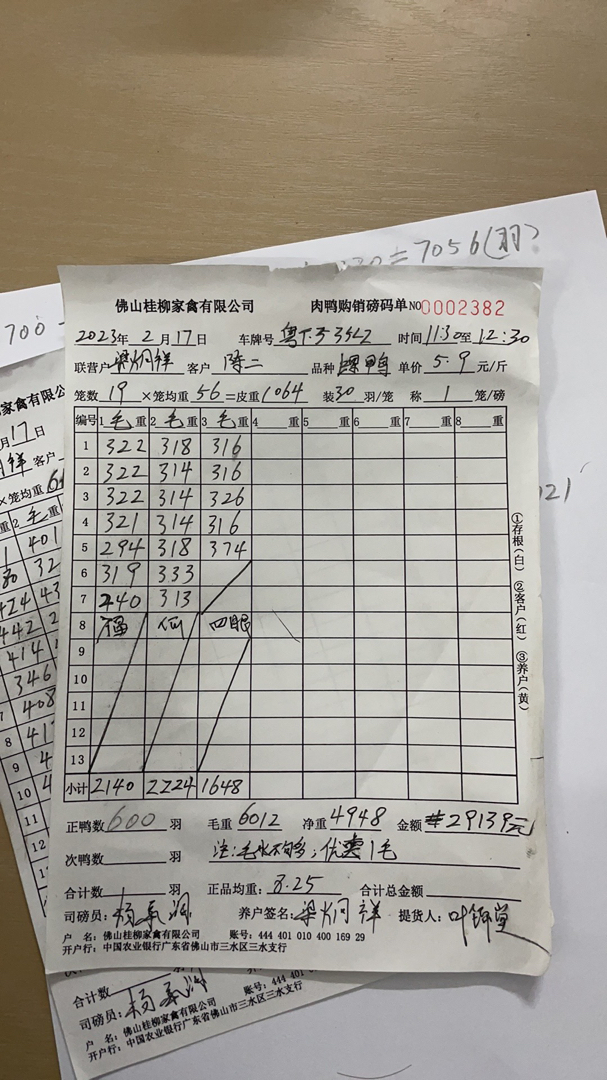 =7056(羽)
700
佛山桂柳家禽有限公司 肉鸭购销磅码单 NO 0002382
2023年 2 月 17 日 车牌号 时间 11:30 至 12:30
联营户 客户 陈二 品种 单价 5.9 元/斤
笼数 19 ×笼均重 56 =皮重 1064 装 30 羽/笼 称 1 笼/磅
编号 1 毛 重 2 毛 重 3 毛 重 4 重 5 重 6 重 7 重 8 重
1 322 318 316
2 322 314 316
3 322 314 326
4 321 314 316
5 294 318 374
6 319 333
7 240 313
8 四眼
9
10
11
12
13
小计 2140 2224 1648
①存根(白) ②客户(红) ③养户(黄)
正鸭数 600 羽 毛重 6012 净重 4948 金额 #29139元
次鸭数 羽 注:毛水不够,优惠1毛
合计数 羽 正品均重: 8.25 合计总金额
司磅员: 养户签名: 提货人:
户 名: 佛山桂柳家禽有限公司 账号: 444 401 010 400 169 29
开户行: 中国农业银行广东省佛山市三水区三水支行
家禽有限公司
月17日
客户
×笼均重
重 2 毛
401
424
442
414
346
408
8
9
10
合计数
司磅员:
户 名: 佛山桂柳家禽有限公司 账号: 444 401
开户行: 中国农业银行广东省佛山市三水区三水支行